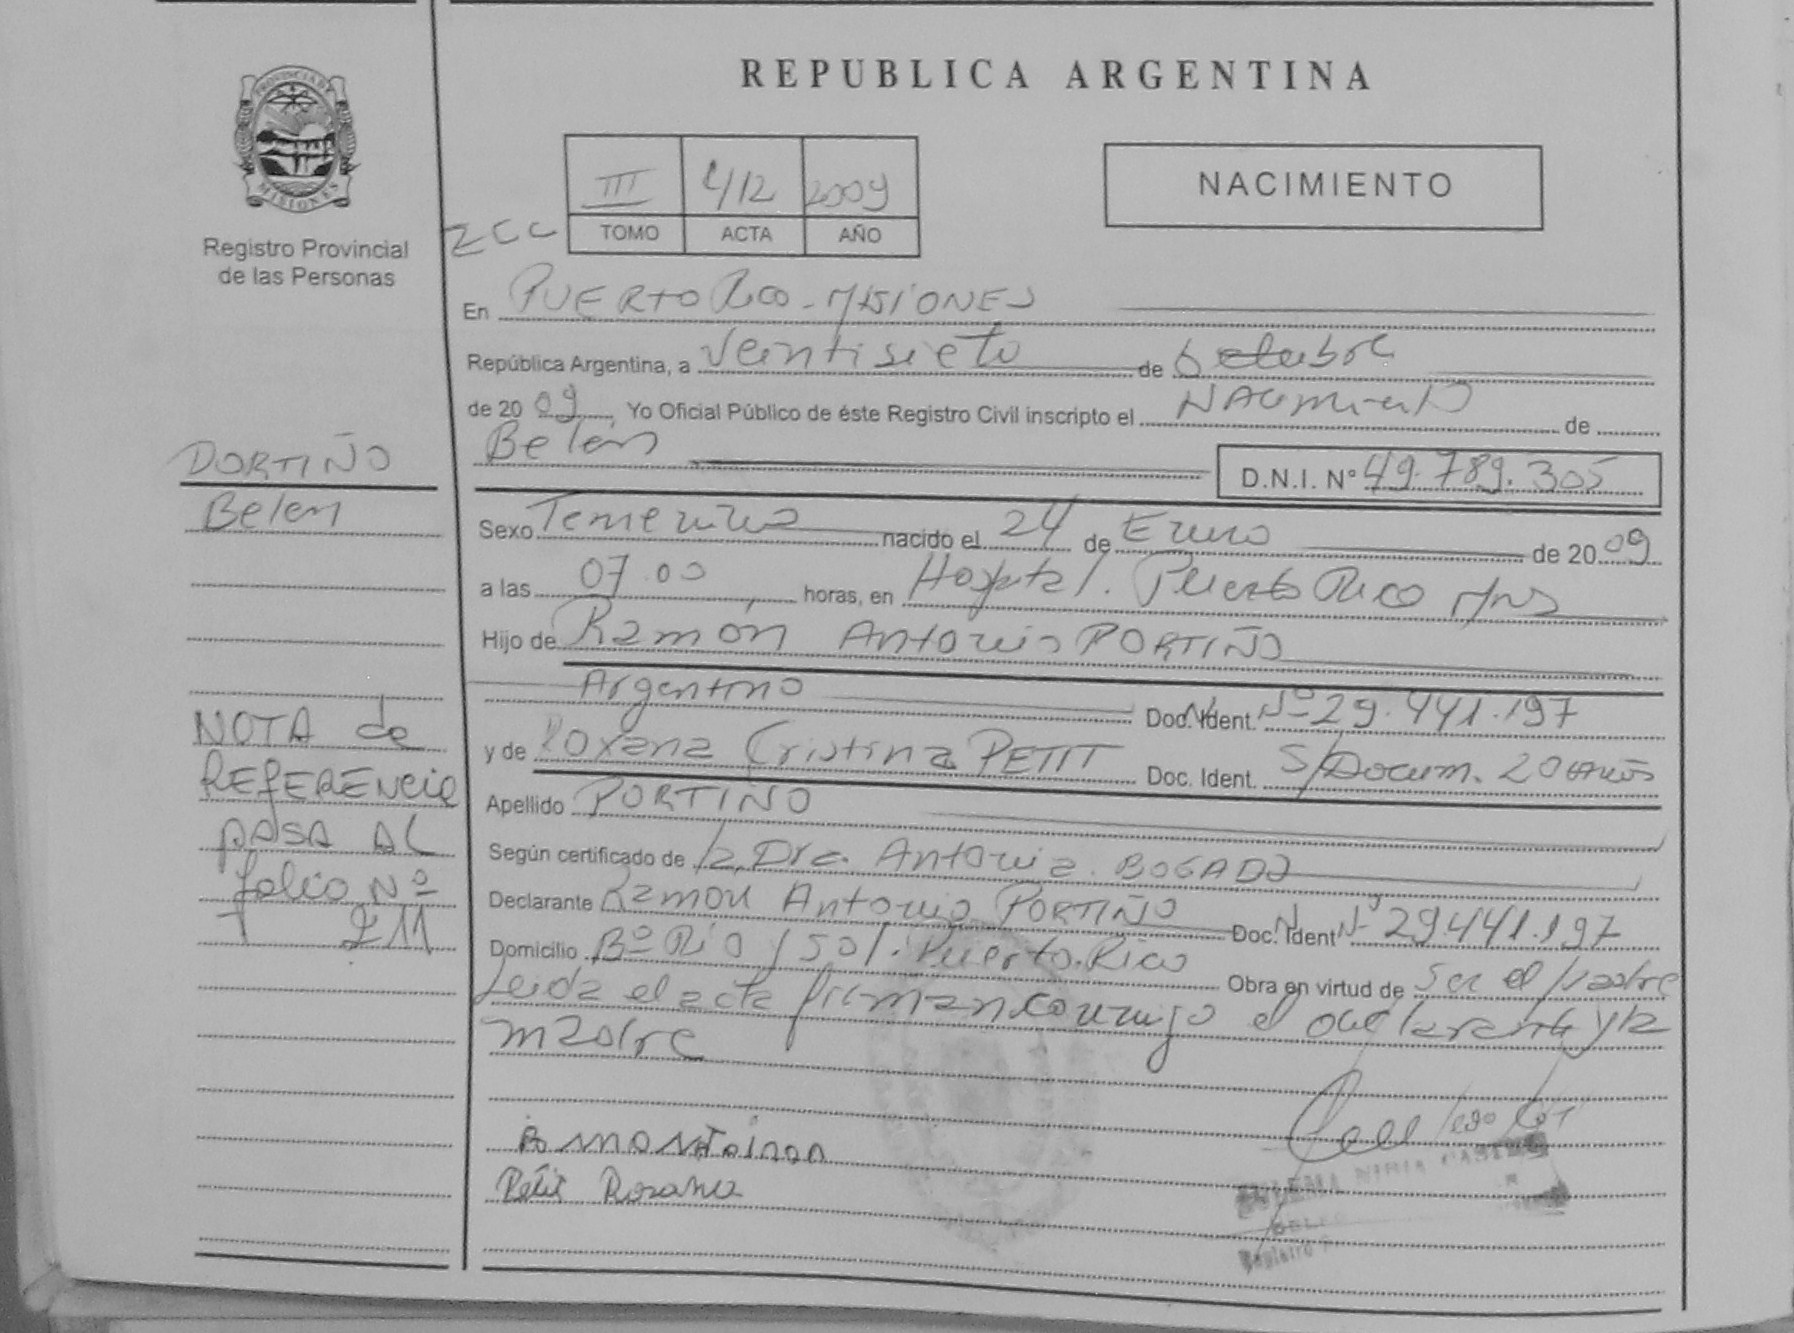 REPUBLICA ARGENTINA
PROVINCIA DE
MISIONES
Registro Provincial
de las Personas
III 412 2009
TOMO ACTA AÑO
NACIMIENTO
En PUERTO Rico - MISIONES
República Argentina, a Veintisiete de Octubre
de 2009, Yo Oficial Público de éste Registro Civil inscripto el Nacimiento de
Belen D.N.I. Nº 49.789.305
PORTIÑO
Belen
Sexo Femenino nacido el 24 de Enero de 2009
a las 07.00 horas, en Hospital. Puerto Rico Mns
Hijo de Ramón Antonio PORTIÑO
Argentino Doc. Ident. Nº 29.441.197
y de Roxana Cristina PETIT Doc. Ident. S/Docum. 20 años
Apellido PORTIÑO
Según certificado de la Dra. Antonia BOGADO
Declarante Ramon Antonio PORTIÑO Doc. Ident Nº 29.441.197
Domicilio Bº Rio /501. Puerto Rico Obra en virtud de ser el padre
Leida el acta firman conmigo el declarante y la
madre
NOTA de
REFERENCIA
PASA AL
folio Nº
211
Petit Roxana